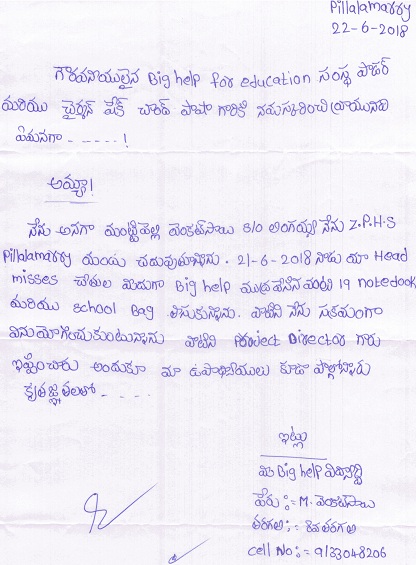 Pillalamarry
22-6-2018
గౌరవనీయులైన Big help for education సంస్థ ఫౌండర్
మరియు ఛైర్మన్ షేక్ చాంద్ పాషా గారికి నమస్కరించి వ్రాయునది
ఏమనగా - - - - - !
అయ్యా!
నేను అనగా మంట్టిపెల్లి వెంకట్‌సాయి S/o లింగయ్య నేను Z.P.H.S
Pillalamarry యందు చదువుతున్నాను. 21-6-2018 నాడు మా Head
misses చేతుల మీదుగా Big help ముద్రించిన వంటి 19 notedook
మరియు School Bag తీసుకున్నాను. వాటిని నేను సక్రమంగా
వినుయోగించుకుంటున్నాను వాటిని Project Director గారు
ఇప్పించారు అందుకూ మా ఉపాధ్యాయులు కూడా పాల్గోన్నారు
కృతజ్ఞతలతో - - - -
ఇట్లు
మీ Big help విద్యార్థి
పేరు :- M. వెంకట్‌సాయి
తరగతి :- 8వ తరగతి
cell No :- 9133048206